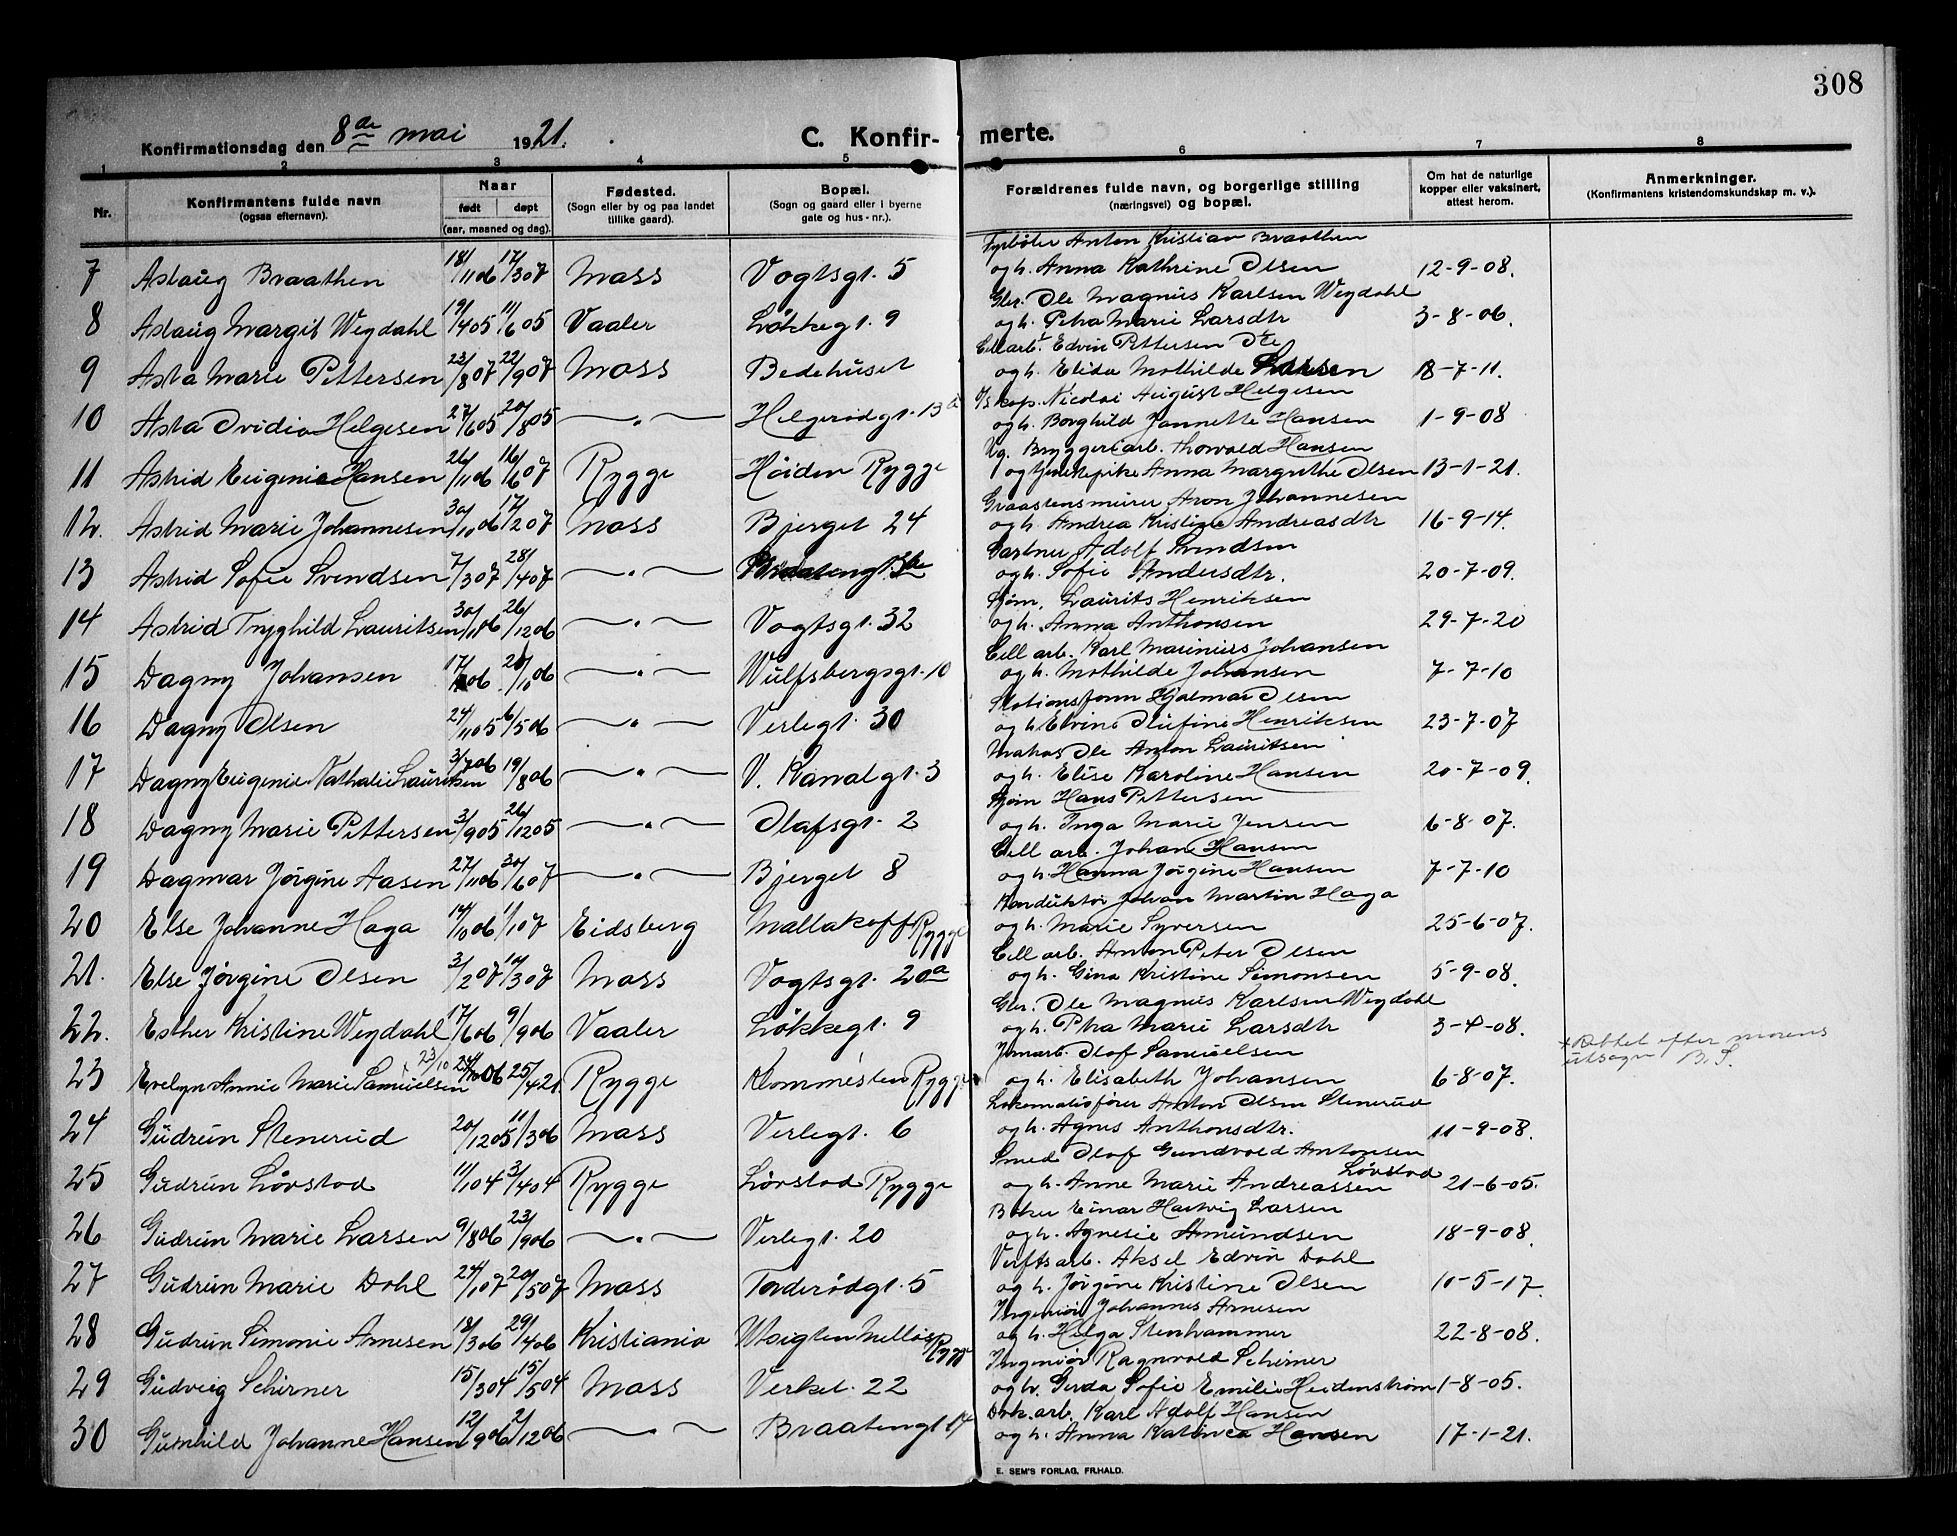 308
Konfirmationsdag den 8de mai 1921.
C. Konfir- merte.
1 2 3 4 5 6 7 8
Nr.
Konfirmantens fulde navn (ogsaa efternavn).
Naar født døpt (aar, maaned og dag).
Fødested. (Sogn eller by og paa landet tillike gaard).
Bopæl. (Sogn og gaard eller i byerne gate og hus-nr.).
Forældrenes fulde navn, og borgerlige stilling (næringsvei) og bopæl.
Om hat de naturlige kopper eller vaksinert, attest herom.
Anmerkninger. (Konfirmantens kristendomskundskap m. v.).
Fyrbøter Anton Kristian Braathen
7 Aslaug Braathen 18/11 06 17/3 07 Moss Vogtsgt. 5 og h. Anna Kathrine Olsen 12-9-08.
Gbr. Ole Magnus Karlsen Wegdahl
8 Aslaug Margit Wegdahl 19/4 05 11/6 05 Vaaler Løkkegt. 9 og h. Petra Marie Larsdtr 3-8-06.
Cellarb. Edvin Pettersen
9 Asta Marie Pettersen 23/8 07 22/9 07 Moss Bedehuset og h. Elida Mathilde Larsen 18-7-11.
Nicolai August Helgesen
10 Asta Ovidia Helgesen 27/6 05 20/8 05 — „ — Helgerødgt. 13a og h. Borghild Jannette Hansen 1-9-08
Ug. Bryggeriarb. Thorvald Hansen
11 Astrid Eugenie Hansen 26/11 06 16/6 07 Rygge Høiden Rygge og tjenestepike Anna Margrethe Olsen 13-1-21.
Graastensmurer Aron Johannesen
12. Astrid Marie Johannesen 30/10 06 17/2 07 Moss Bjerget 24 og h. Andrea Kristine Andreasdtr 16-9-14.
Gartner Adolf Svendsen
13 Astrid Sofie Svendsen 7/3 07 28/4 07 — „ — og h. Sofie Andersdtr. 20-7-09.
Sjøm. Laurits Henriksen
14 Astrid Tryghild Lauritsen 30/11 06 26/12 06 — „ — Vogtsgt. 32 og h. Anna Anthonsen 29-7-20
Cell arb. Karl Marinius Johansen
15 Dagny Johansen 17/ 06 28/10 06 — „ — Wulfsbergsgt. 10 og h. Mathilde Johansen 7-7-10
Stationsform Hjalmar Olsen
16 Dagny Olsen 24/11 05 6/5 06 — „ — Verlegt. 30 og h. Elvine Olufine Henriksen 23-7-07
Matros Ole Anton Lauritsen
17 Dagny Eugenie Nathalie Lauritsen 3/7 06 19/8 06 — „ — V. Kanalgt. 3 og h. Elise Karoline Hansen 20-7-09.
Sjøm Hans Pettersen
18 Dagny Marie Pettersen 3/9 05 26/12 05 — „ — Olafsgt. 2 og h. Inga Marie Jensen 6-8-07.
Cell arb. Johan Hansen
19 Dagmar Jørgine Aasen 27/11 06 30/6 07 — „ — Bjerget 8 og h. Hanna Jørgine Hansen 7-7-10
Konduktør Johan Martin Haga
20 Else Johanne Haga 14/10 06 1/1 07 Eidsberg Mallakoff Rygge og h. Marie Syversen 25-6-07.
Cell arb. Anton Peter Olsen
21. Else Jørgine Olsen 3/2 07 17/3 07 Moss Vogtsgt. 20a og h. Gina Kristine Simonsen 5-9-08.
Gbr. Ole Magnus Karlsen Wegdahl
22. Esther Kristine Wegdahl 17/6 06 9/9 06 Vaaler Løkkegt. 9 og h. Petra Marie Larsdtr 3-4-08.
Jernarb. Olof Samuelsen
23 Evelyn Annie Marie Samuelsen x 23/10 24/10 06 25/4 21 Rygge Kommesten Rygge og h. Elisabeth Johansen 6-8-07. x Rettet efter morens utsagn B.S.
Lokomotivfører Anton Olsen Stenerud
24 Gudrun Stenerud 20/12 05 11/3 06 Moss Verlegt. 6 og h. Agnes Anthonsdtr. 11-9-08.
Smed Olaf Gundvald Antonsen Løvstad
25 Gudrun Løvstad 11/1 04 3/4 04 Rygge Løvstad Rygge og h. Anne Marie Andreassen 21-6-05.
Baker Einar Hartvig Larsen
26 Gudrun Marie Larsen 9/8 06 23/9 06 — „ — Verlegt. 20 og h. Agnesie Amundsen 18-9-08.
Verftsarb. Aksel Edvin Dahl
27 Gudrun Marie Dahl 24/1 07 20/5 07 Moss Tarderødgt. 5 og h. Jørgine Kristine Olsen 10-5-17.
Ingeniør Johannes Arnesen
28 Gudrun Simonie Arnesen 18/3 06 29/4 06 Kristiania Rygge og h. Helga Stenhammer 22-8-08.
Ingeniør Ragnvald Schirner
29 Gudveig Schirner 15/3 04 15/5 04 Moss Verket. 22 og h. Gerda Sofie Emilie Heidenstrøm 1-8-05.
Dok. arb. Karl Adolf Hansen
30 Gunhild Johanne Hansen 12/9 06 2/12 06 — „ — Braatengt 17 og h. Anna Katinca Hansen 17-1-21.
E. SEM'S FORLAG, FR.HALD.